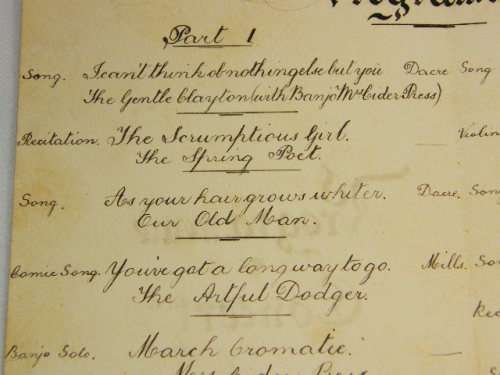 Program
Part 1
Song. I can't think of nothing else but you Dacre Song
The Gentle Clayton (with Banjo Mr Cider Press)
Recitation. The Scrumptious Girl. — Violin
The Spring Poet.
Song. As your hair grows whiter. Dacre. Song
Our Old Man.
Comic Song. You've got a long way to go. Mills. So
The Artful Dodger.
Rec
Banjo Solo. March Cromatic. — S